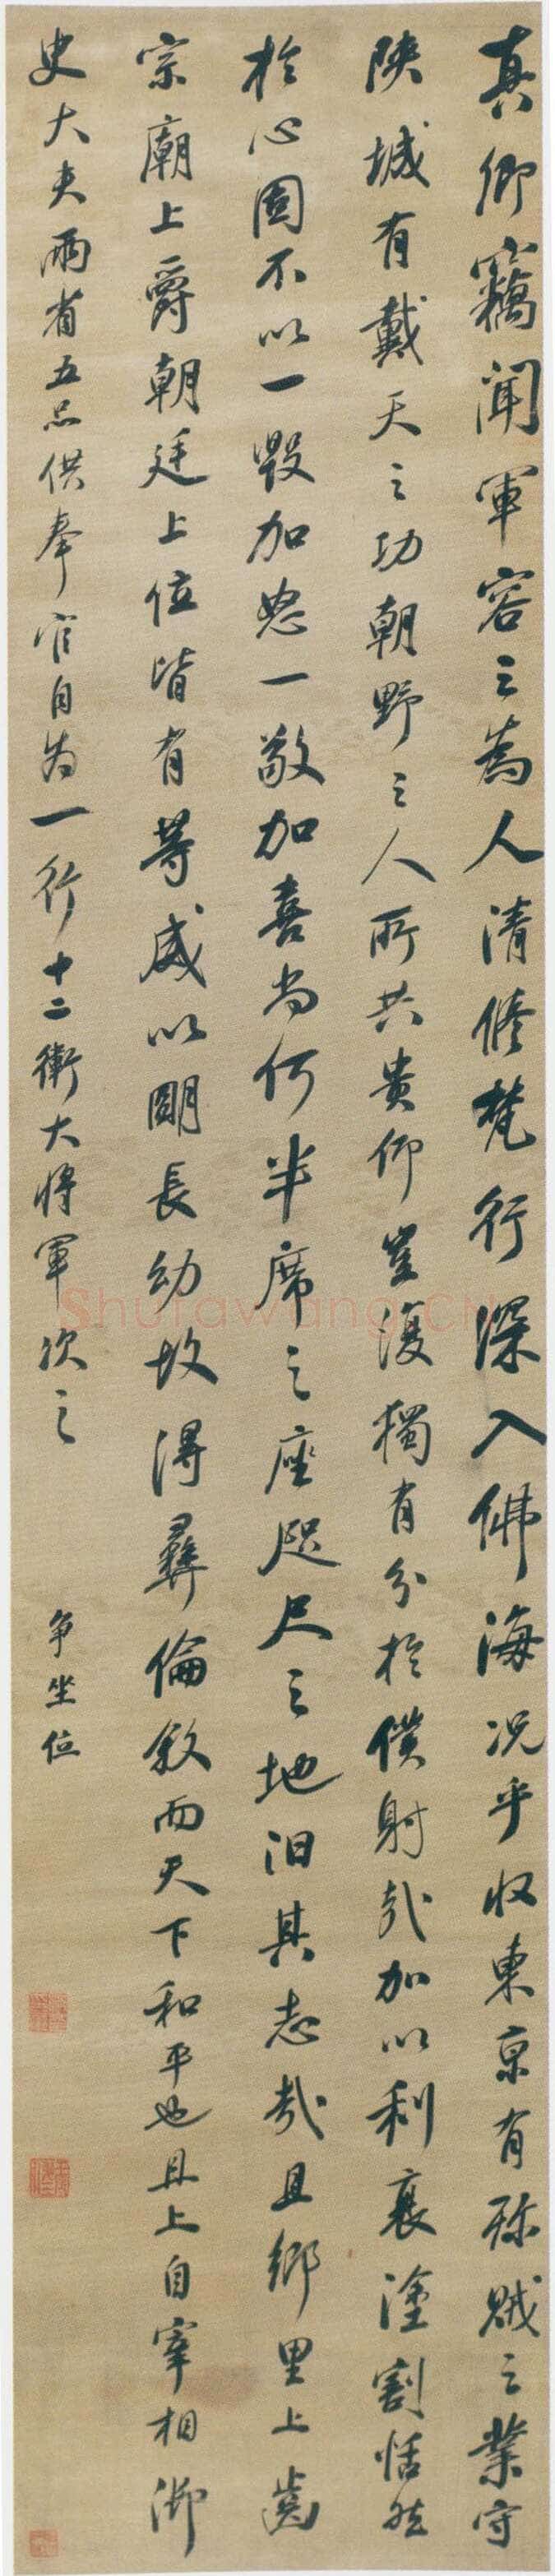 真卿竊聞軍容之為人清修梵行深入佛海況乎收東京有殄賊之業守
陝城有戴天之功朝野之人所共貴仰豈復獨有分於僕射哉加以利衰塗割恬然
於心固不以一毀加怒一敬加喜尚何半席之座咫尺之地汩其志哉且鄉里上齒
宗廟上爵朝廷上位皆有等威以朙長幼故得彝倫敘而天下和平也且上自宰相御
史大夫兩省五品供奉官自為一行十二衛大將軍次之
爭坐位
Shufawang.CN